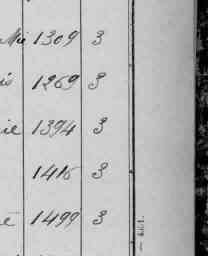 Mii 1309 3
is 1269 3
ie 1394 3
1416 3
e 1499 3
— 661.